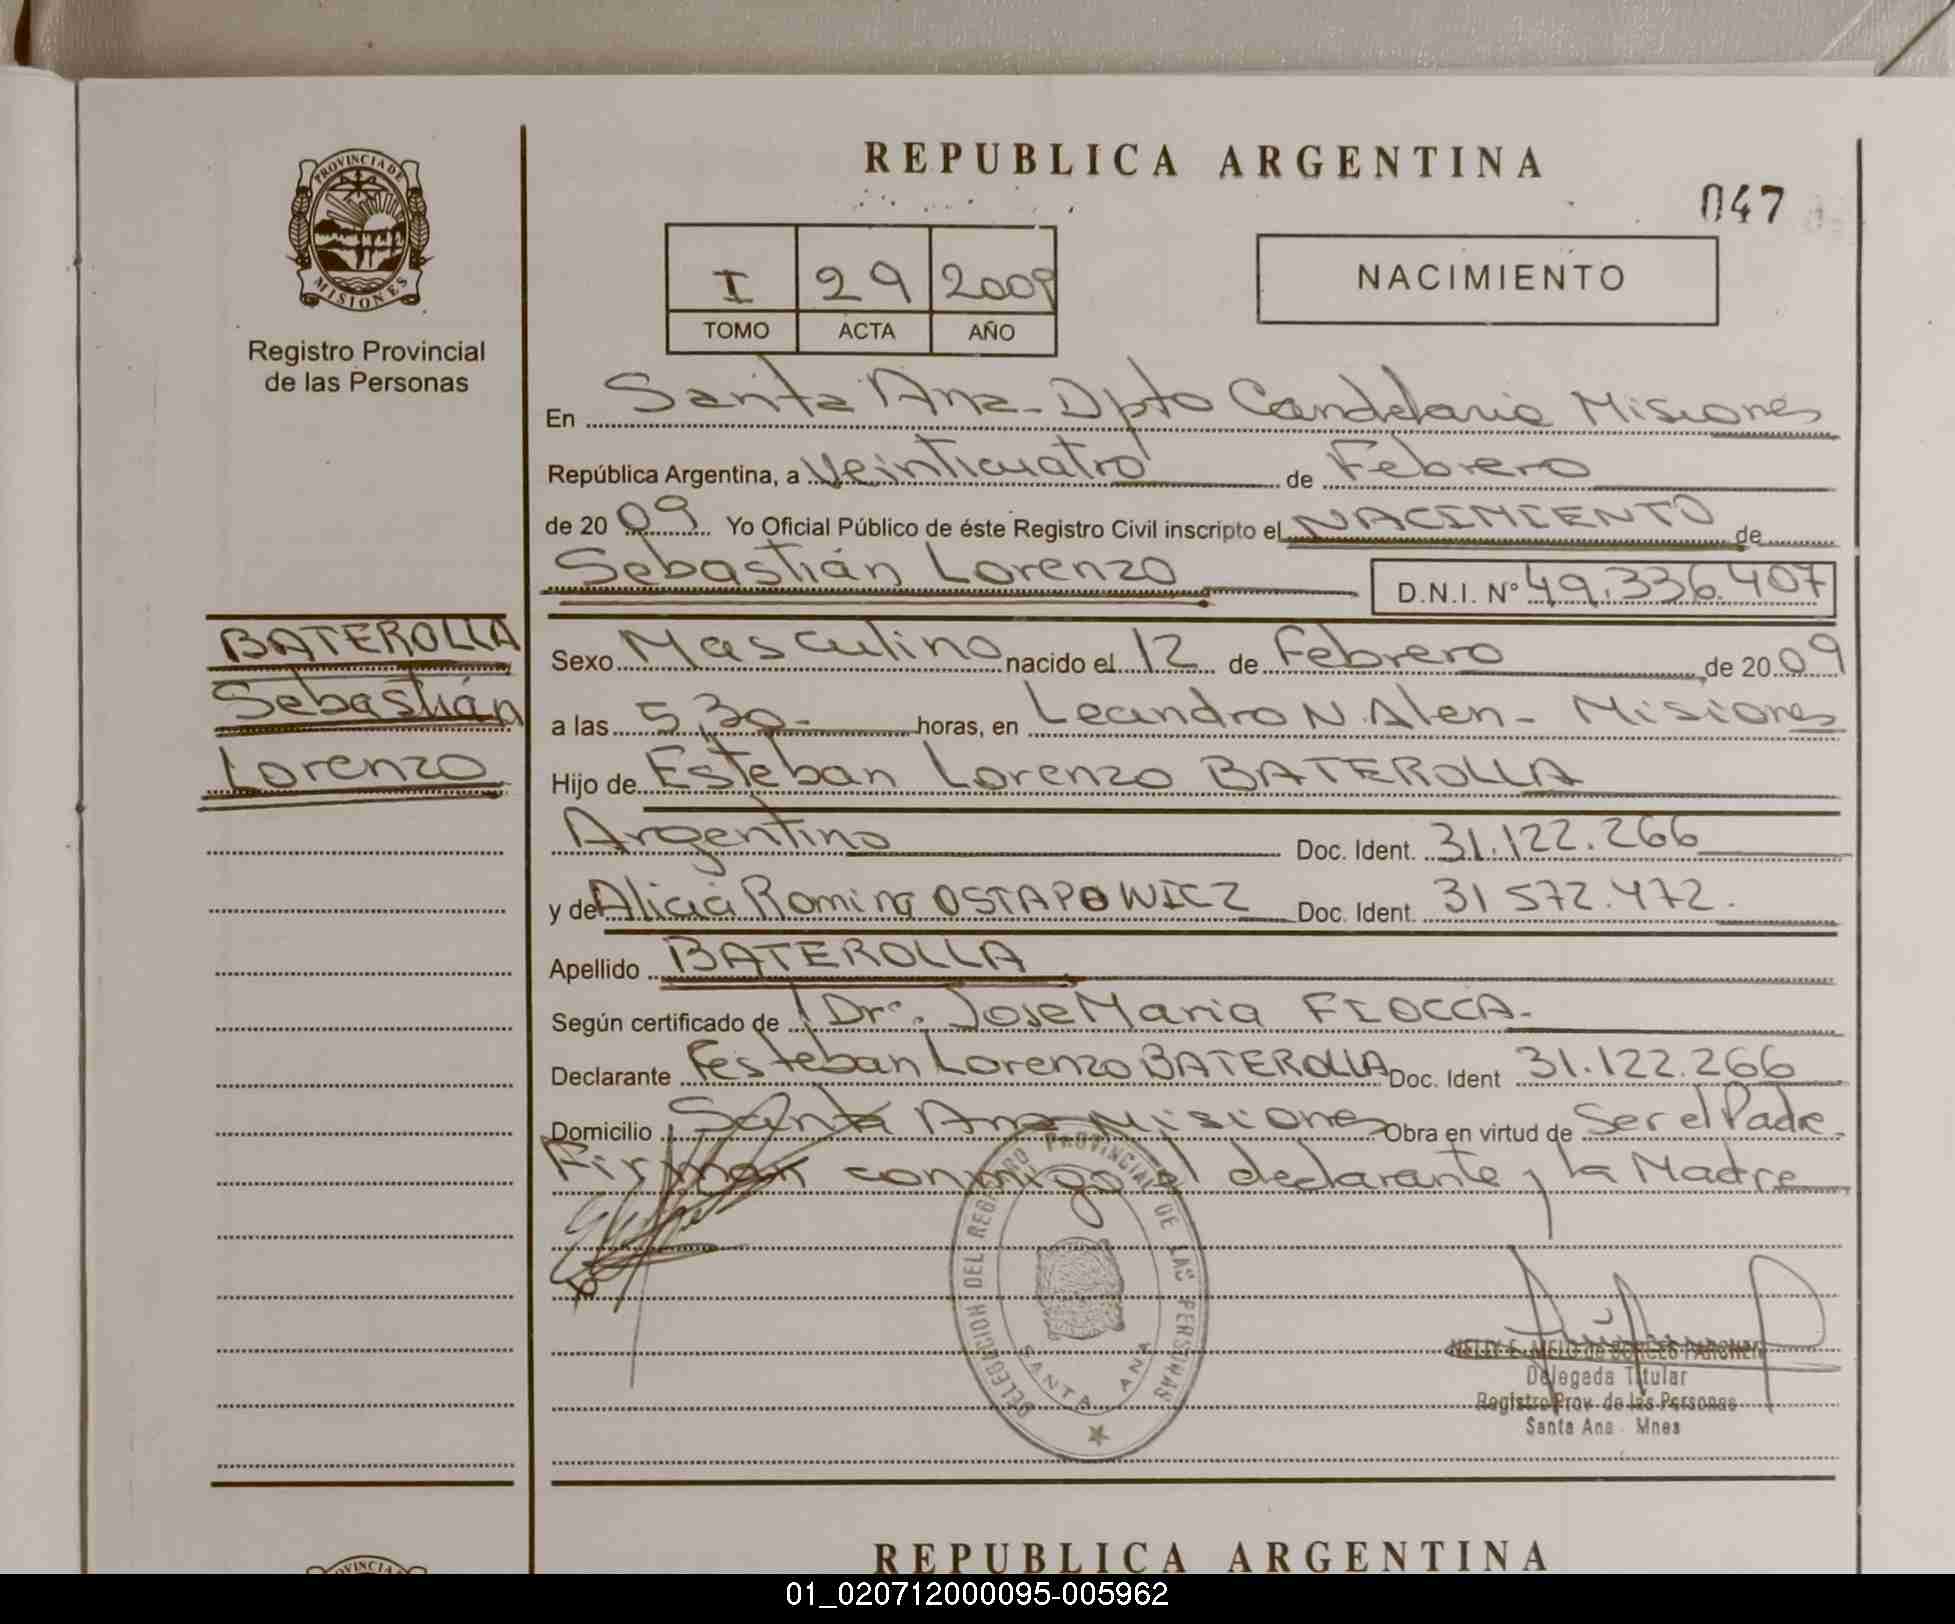 REPUBLICA ARGENTINA
047
PROVINCIA DE
MISIONES
Registro Provincial
de las Personas
I 29 2009
TOMO ACTA AÑO
NACIMIENTO
En Santa Ana - Dpto Candelaria Misiones
República Argentina, a Veinticuatro de Febrero
de 2009 Yo Oficial Público de éste Registro Civil inscripto el NACIMIENTO de
Sebastián Lorenzo D.N.I. Nº 49.336.407
BATEROLLA
Sebastián
Lorenzo
Sexo Masculino nacido el 12 de Febrero de 2009
a las 5,30- horas, en Leandro N. Alen - Misiones
Hijo de Esteban Lorenzo BATEROLLA
Argentino Doc. Ident. 31.122.266
y de Alicia Romina OSTAPOWICZ Doc. Ident. 31 572.472.
Apellido BATEROLLA
Según certificado de Dr. Jose Maria FIOCCA-
Declarante Esteban Lorenzo BATEROLLA Doc. Ident 31.122.266
Domicilio Santa Ana Misiones Obra en virtud de Ser el Padre.
Firman conmigo el declarante y la Madre
DELEGACION DEL REGISTRO PROVINCIAL DE LAS PERSONAS
SANTA ANA
NELLY E. MELO de BORGES
Delegada Titular
Registro Prov. de las Personas
Santa Ana - Mnes
PROVINCIA
REPUBLICA ARGENTINA
01_020712000095-005962